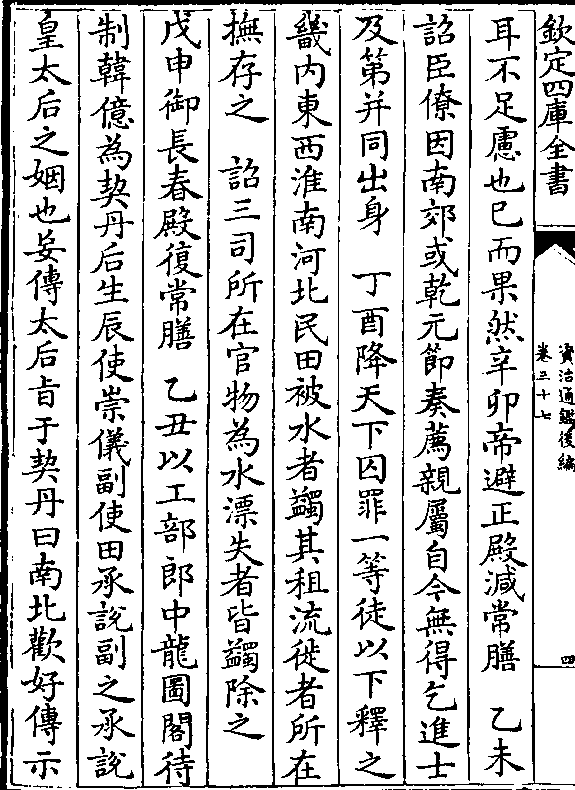 欽定四庫全書
資治通鑑後編
卷三十七
四
耳不足慮也已而果然辛卯帝避正殿減常膳　乙未
詔臣僚因南郊或乾元節奏薦親屬自今無得乞進士
及第并同出身　丁酉降天下囚罪一等徒以下釋之
畿內東西淮南河北民田被水者蠲其租流徙者所在
撫存之　詔三司所在官物為水漂失者皆蠲除之
戊申御長春殿復常膳　乙丑以工部郎中龍圖閣待
制韓億為契丹后生辰使崇儀副使田承說副之承說
皇太后之姻也妄傳太后旨于契丹曰南北歡好傳示